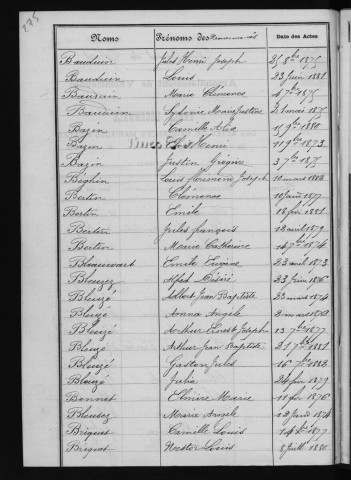 Noms Prénoms des Nouveaux nés Date des Actes
Bauduin Jules Henri Joseph 25 8bre 1875
Bauduin Louis 23 juin 1881
Bauduin Marie Clémence 4 7bre 1875
Bauduin Sydonie Marie Justine 21 mai 1875
Bazin Camille 15 9bre 1880
Bazin Henri 11 9bre 1873
Bazin Justin Grégoire 3 1875
Béghin Louis Joseph 10 mars 1882
Bertin Clémence 10 1877
Bertin Emile 18 fév 1881
Bertin Jules françois 12 avril 1879
Bertin Marie Catherine 14 7bre 1874
Emile Eugène 23 avril 1873
Alfred Désiré 23 juin 1876
Bleuzé Albert Jean Baptiste 22 mars 1874
Bleuzé Anna Angèle 2 mars 1873
Bleuzé Arthur Ernest Joseph 13 7bre 1877
Bleuzé Arthur Jean Baptiste 21 1881
Bleuzé Gaston Jules 16 1882
Bleuzé Julia 24 fév 1879
Bonnet Elmire Marie 11 fév 1876
Marie Angèle 12 1874
Briquet Camille Louis 14 1877
Briquet Nestor Louis 8 Juill 1880